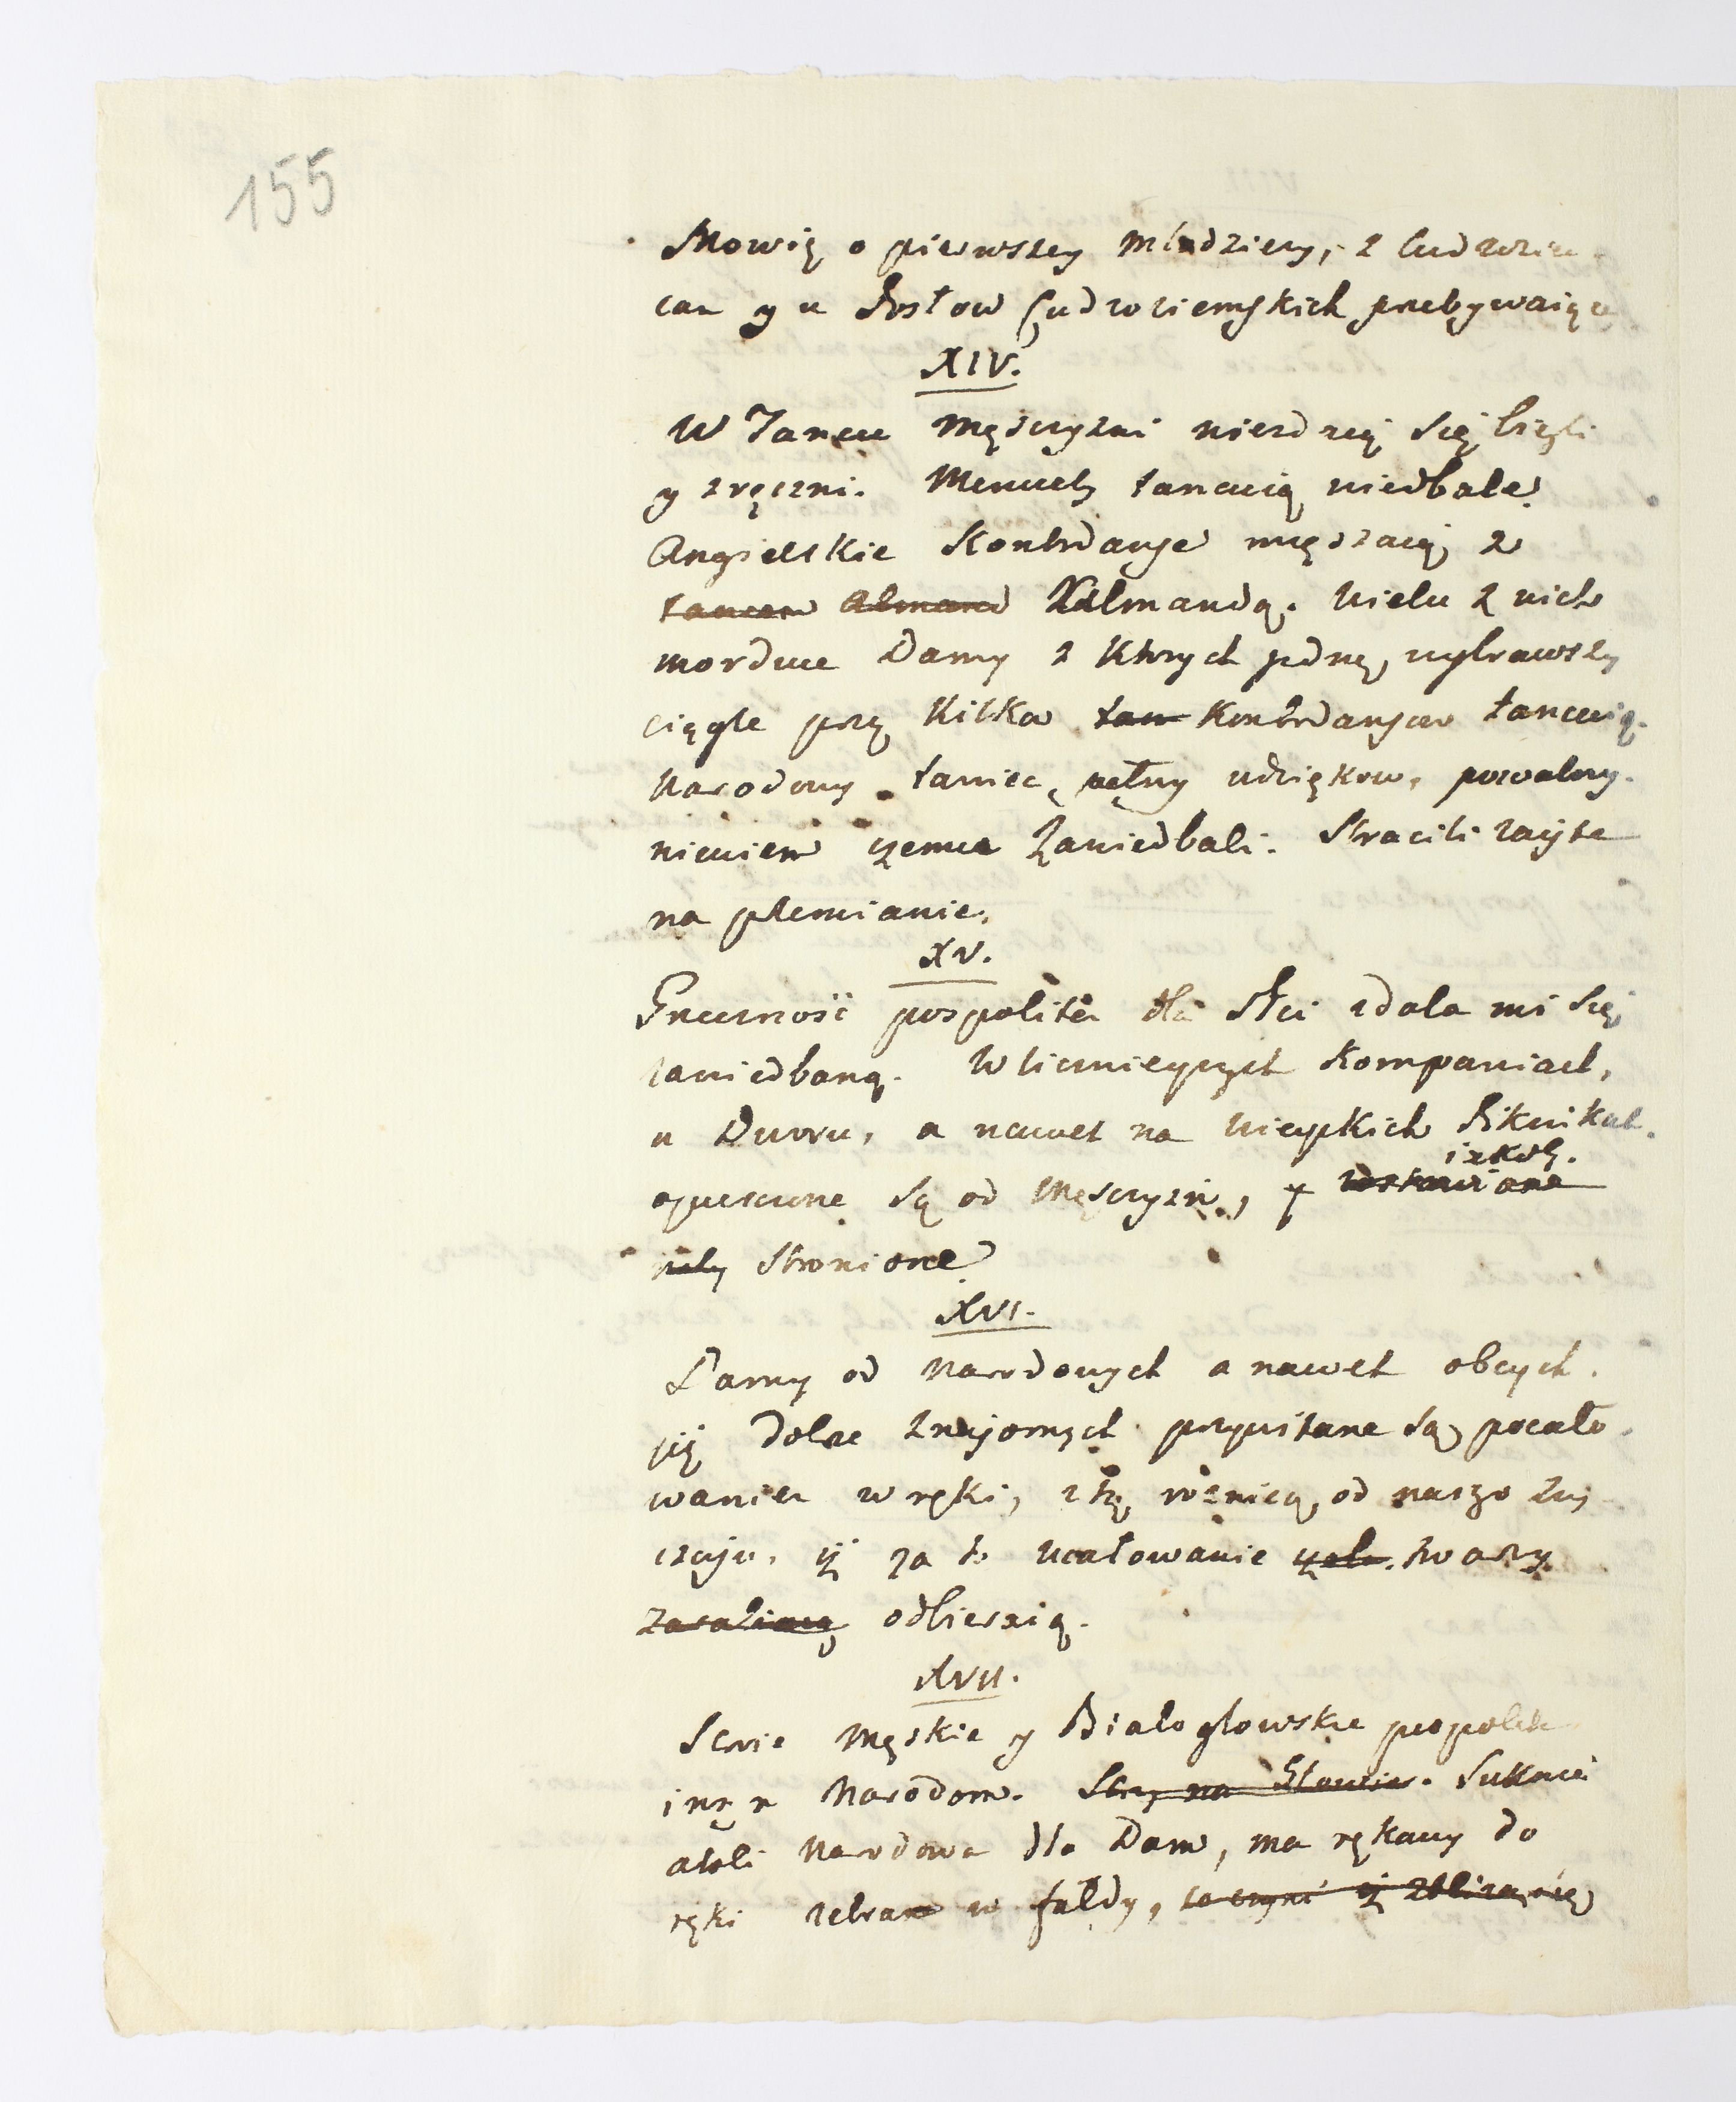 155
Mowię o pierwszey młodzieży, z Cudzozie
cam y u Posłow Cudzoziemskich przebywaiącey
XIV.
W Tancu Męsczyzni niezdaią się biegli
y zręczni. Menuety tancuią niedbale.
Angielskie Kontrdanse mięszaią z
tancem Almand Allmandą. Wielu z nich
morduie Damy z ktorych jednę wybrawszy
ciągle przez kilka tan Kontrdansow tancuią.
Narodowy taniec, pełny wdziękow, powolny
niewiem czemu zaniedbali. Stracili zayste
na plemianie.
XV.
Grzeczność pospolita dla Płci zdala mi się
zaniedbaną. W licznieyszych Kompaniach,
u Dworu, a nawet na wieyskich Piknikah
izkoby.
opuszczone są od Męsczyzn, y
stronione
XVI.
Damy od Narodowych a nawet obcych
jey dobrze znajomych przywitane są pocało
waniem w ręki, z tą roznicą od naszego zwy
czaju, iż za to ucałowanie twarzy
odbieraią.
XVII.
Stroie Męskie y Białogłowskie pospolite
innym Narodom. Stroy na Głowie. Suknia
atoli Narodowa dla Dam, ma rękawy do
ręki zebrane w fałdy, co czyni iż zbliza się